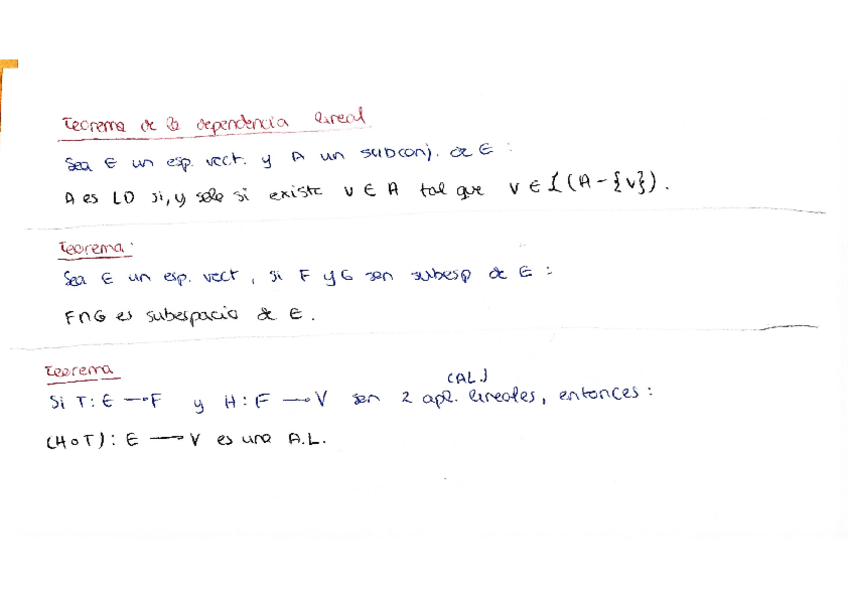 Teorema de la dependencia lineal
Sea E un esp. vect. y A un subconj. de E :
A es LD si, y solo si existe v ∈ A tal que v ∈ L(A-{v}).
Teorema:
Sea E un esp. vect, si F y G son subesp de E :
F∩G es subespacio de E.
Teorema
(AL.)
Si T: E → F y H: F → V son 2 apl. lineales, entonces:
(H∘T): E → V es una A.L.